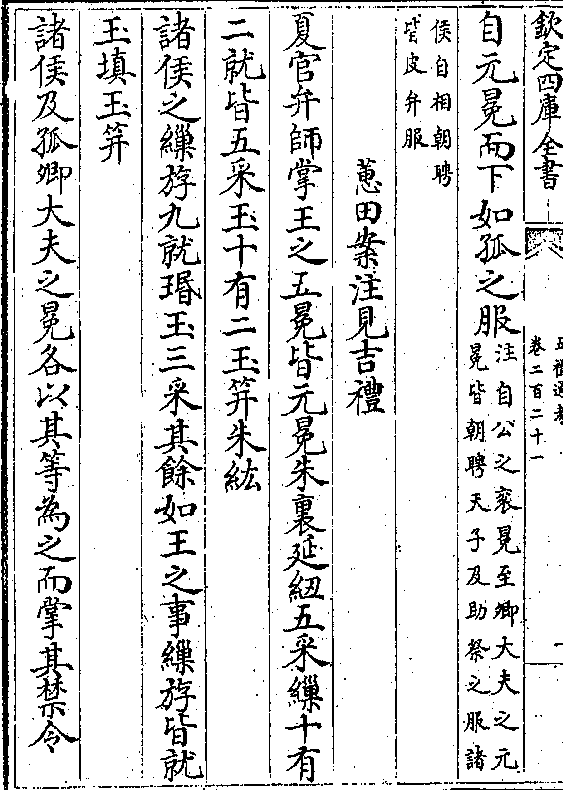 欽定四庫全書
五禮通考
卷二百二十一
自元冕而下如孤之服
注自公之衮冕至卿大夫之元
冕皆朝聘天子及助祭之服諸
侯自相朝聘
皆皮弁服
蕙田案注見吉禮
夏官弁師掌王之五冕皆元冕朱裏延紐五采繅十有
二就皆五采玉十有二玉笄朱紘
諸侯之繅斿九就瑉玉三采其餘如王之事繅斿皆就
玉塡玉笄
諸侯及孤卿大夫之冕各以其等為之而掌其禁令